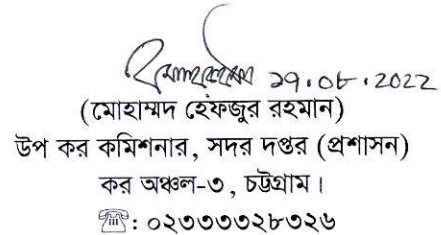 ২৯.০৮.২০২২
(মোহাম্মদ হেফজুর রহমান)
উপ কর কমিশনার, সদর দপ্তর (প্রশাসন)
কর অঞ্চল-৩, চট্টগ্রাম।
☎: ০২৩৩৩৩২৮৩২৬